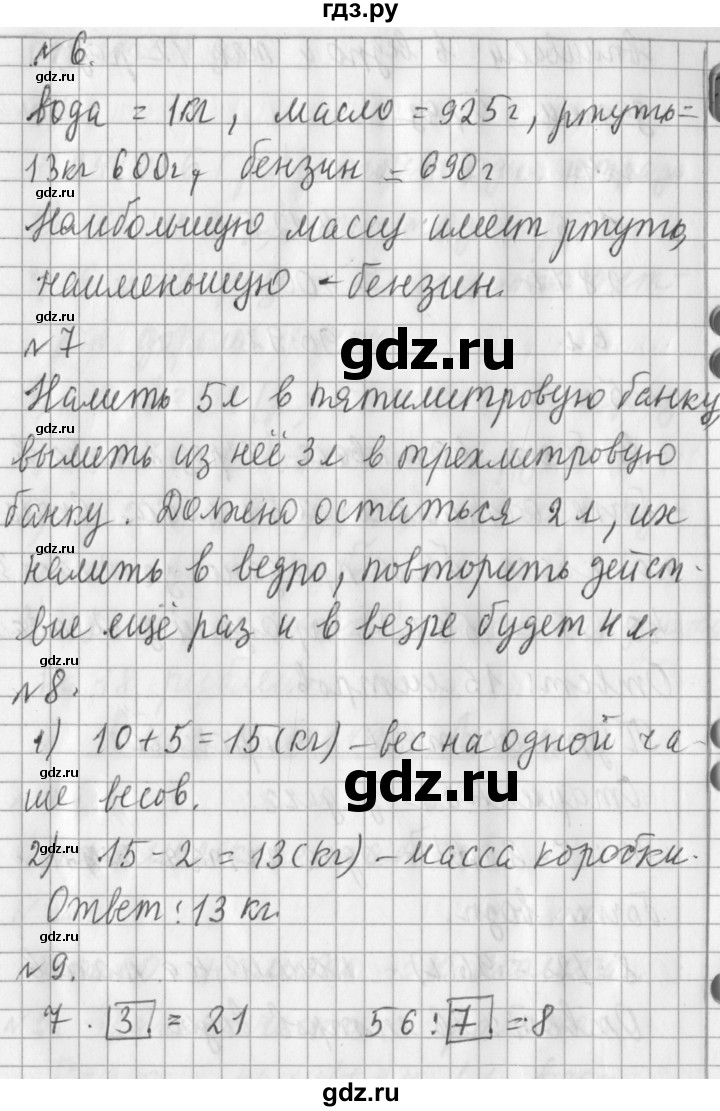 гдз.ру
gdz.ru
№6.
вода = 1кг, масло = 925г, ртуть=
gdz.ru
13кг 600г, бензин = 690г
gdz.ru
Наибольшую массу имеет ртуть,
gdz.ru
наименьшую - бензин.
gdz.ru
№7
gdz.ru
Налить 5л в пятилитровую банку,
gdz.ru
вылить из неё 3л в трехлитровую
банку. Должно остаться 2л, их
gdz.ru
налить в ведро, повторить дейст-
вие ещё раз и в ведре будет 4л.
gdz.ru
№8.
1) 10+5=15(кг) - вес на одной ча-
gdz.ru
ше весов.
gdz.ru
2) 15-2=13(кг) - масса коробки.
Ответ: 13 кг.
gdz.ru
№9.
7 · 3 = 21 56 : 7 = 8
gdz.ru